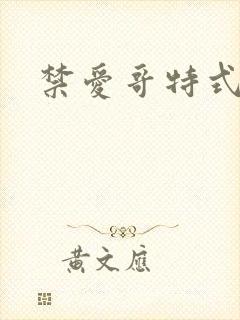 禁愛哥特式
黄文應